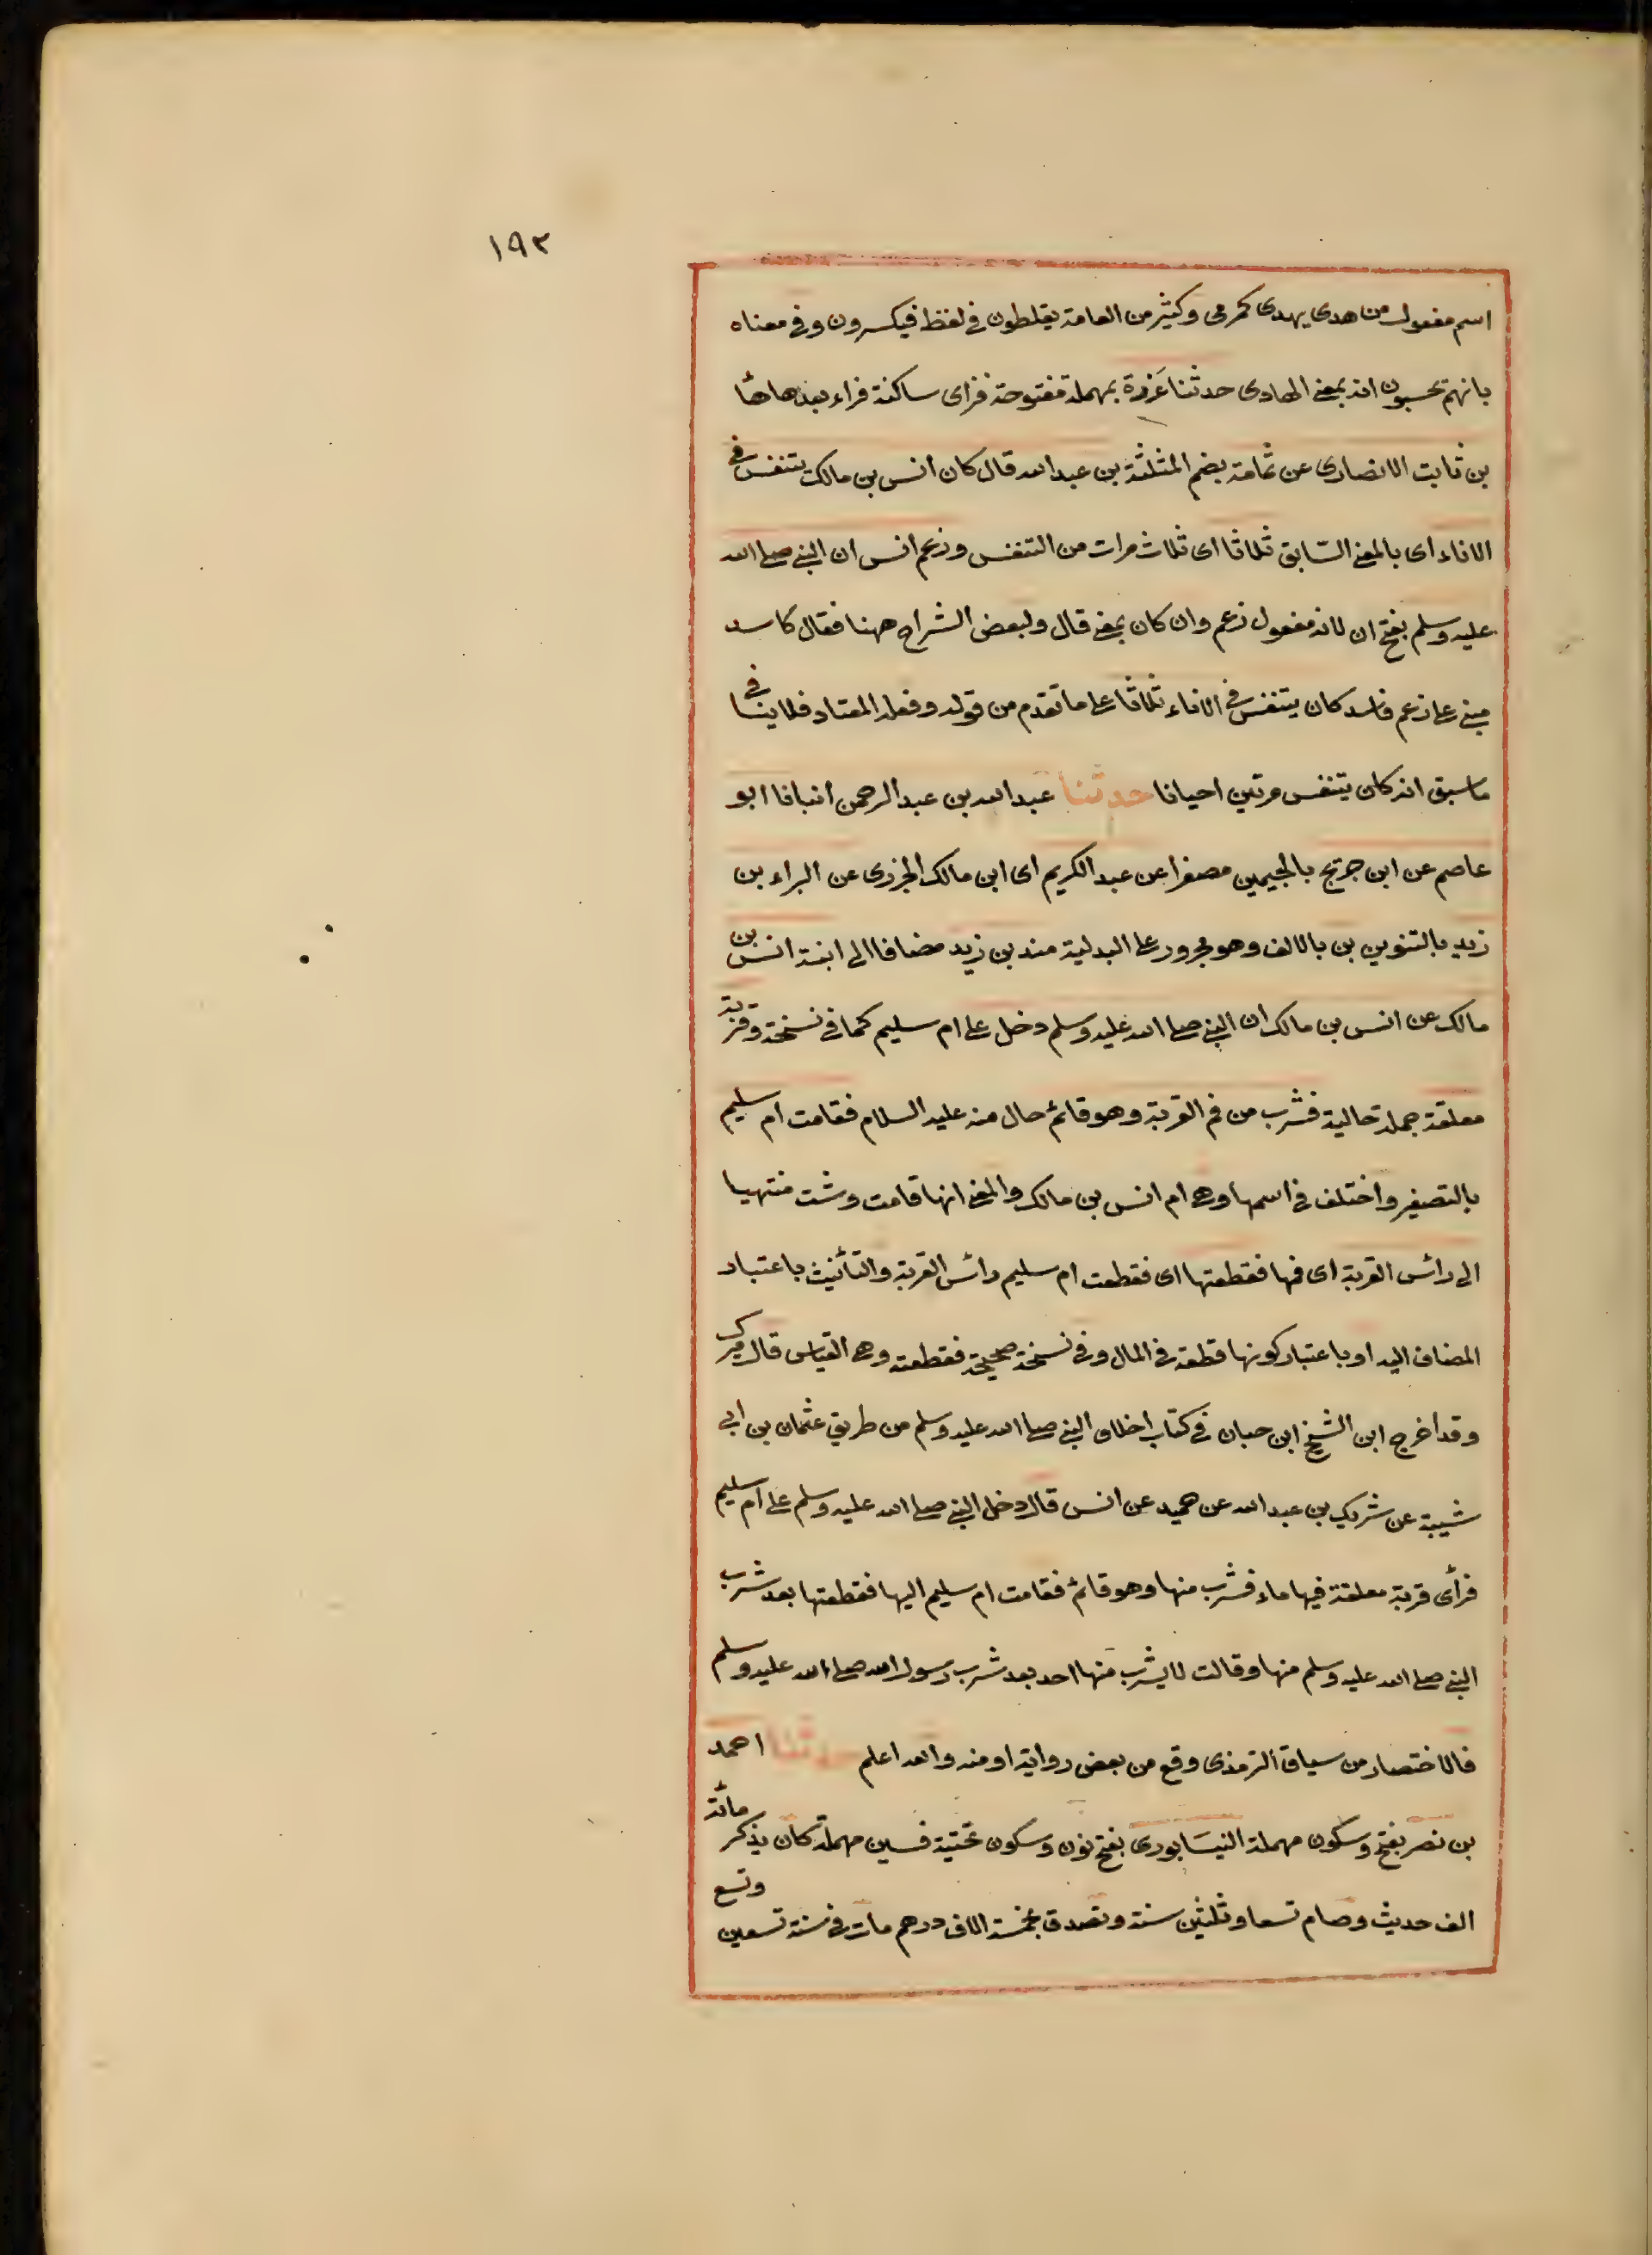 ١٩٢
اسم مفعول من هدى يهدى كمرمى وكثير من العامة يغلطون فى لفظ فيكسرون وفى معناه
بانهم يحسبون انه بمعنى الهادى حدثنا عَزرة بمهملة مفتوحة فزاى ساكنة فراء بعدها هاء
بن ثابت الانصارى عن ثمامة بضم المثلثة بن عبد الله قال كان أنس بن مالك يتنفس فى
الاناء اى بالمعنى السّابق ثلاثا اى ثلاث مرات من التنفس وزعم انس ان النبى صلى الله
عليه وسلم بفتح ان لانه مفعول زعم وان كان بمعنى قال ولبعض الشراح ههنا فقال كاسد
مبنى على زعم فاسد كان يتنفس فى الاناء ثلاثا على ما تقدم من قوله وفعله المعتاد فلا ينافى
ما سبق انه كان يتنفس مرتين احيانا حدثنا عبد الله بن عبد الرحمن انبانا ابو
عاصم عن ابن جريج بالجيمين مصغرا عن عبد الكريم اى ابن مالك الجزرى عن البراء بن
زيد بالتنوين بن بالالف وهو مجرور على البدلية منه بن زيد مضافا الى ابنة انس بن
مالك عن انس بن مالك ان النبى صلى الله عليه وسلم دخل على ام سليم كما فى نسخة وقربة
معلقة جملة حالية فشرب من فم القربة وهو قائم حال منه عليه السلام فقامت ام سليم
بالتصغير واختلف فى اسمها وهى ام انس بن مالك والمعنى انها قامت ومشت منتهيا
الى رائس القربة اى فمها فقطعتها اى فقطعت ام سليم رائس القربة والتأنيث باعتبار
المضاف اليه او باعتبار كونها قطعة فى المال وفى نسخة صحيحة فقطعته وهى القياس قال ميرك
وقد اخرج ابن الشيخ ابن حبان فى كتاب اخلاق النبى صلى الله عليه وسلم من طريق عثمان بن ابى
شيبة عن شريك بن عبد الله عن حميد عن انس قال دخل النبى صلى الله عليه وسلم على ام سليم
فرأى قربة معلقة فيها ماء فشرب منها وهو قائم فقامت ام سليم اليها فقطعتها بعد شرب
النبى صلى الله عليه وسلم منها وقالت لا يشرب منها احد بعد شرب رسول الله صلى الله عليه وسلم
فالاختصار من سياق الترمذى وقع من بعض رواية او منه والله اعلم حدثنا احمد
بن نصر بفتح وسكون مهملة النيسَابورى بفتح نون وسكون تحتية فسين مهملة كان يذكر مائة
الف حديث وصام تسعا وثلثين سنة وتصدق بخمسة الاف درهم مات فى سنة تسعين وتسع